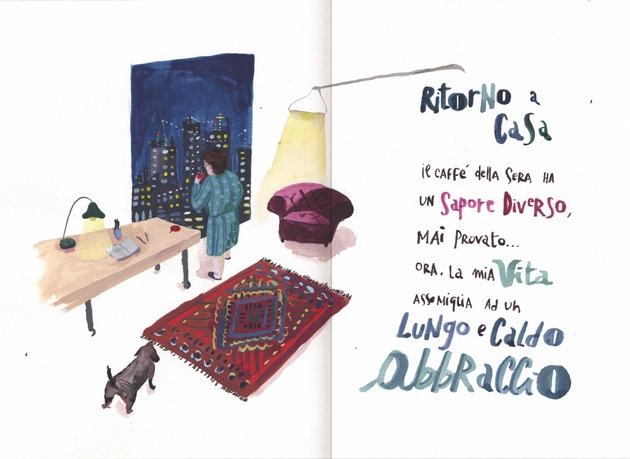 RitorNo a
CaSa
il CAFFÉ dEllA SERA HA
UN Sapore DiVERSO,
MAi PROVATO...
ORA, LA MiA Vita
ASSOMiGLiA AD UN
LUNGO e CALDO
abbRaCCiO